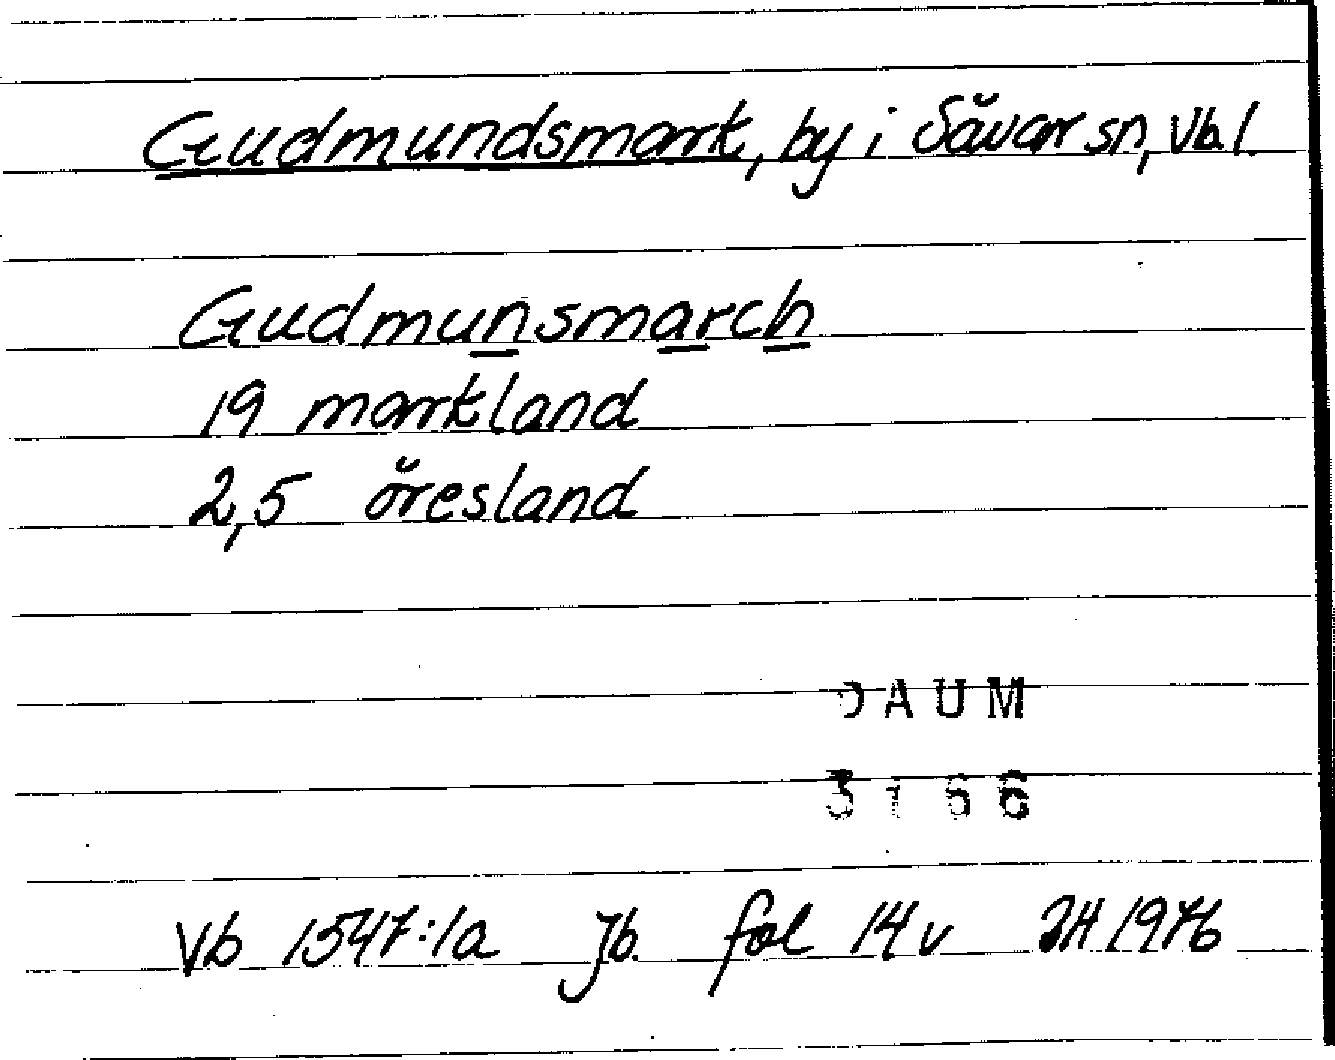 Gudmundsmark, by i Sävar sn, Vb. l.
Gudmunsmarch
19 markland
2,5 öresland
DAUM
3166
Vb 1547:1a Jb. fol 14 v 1976